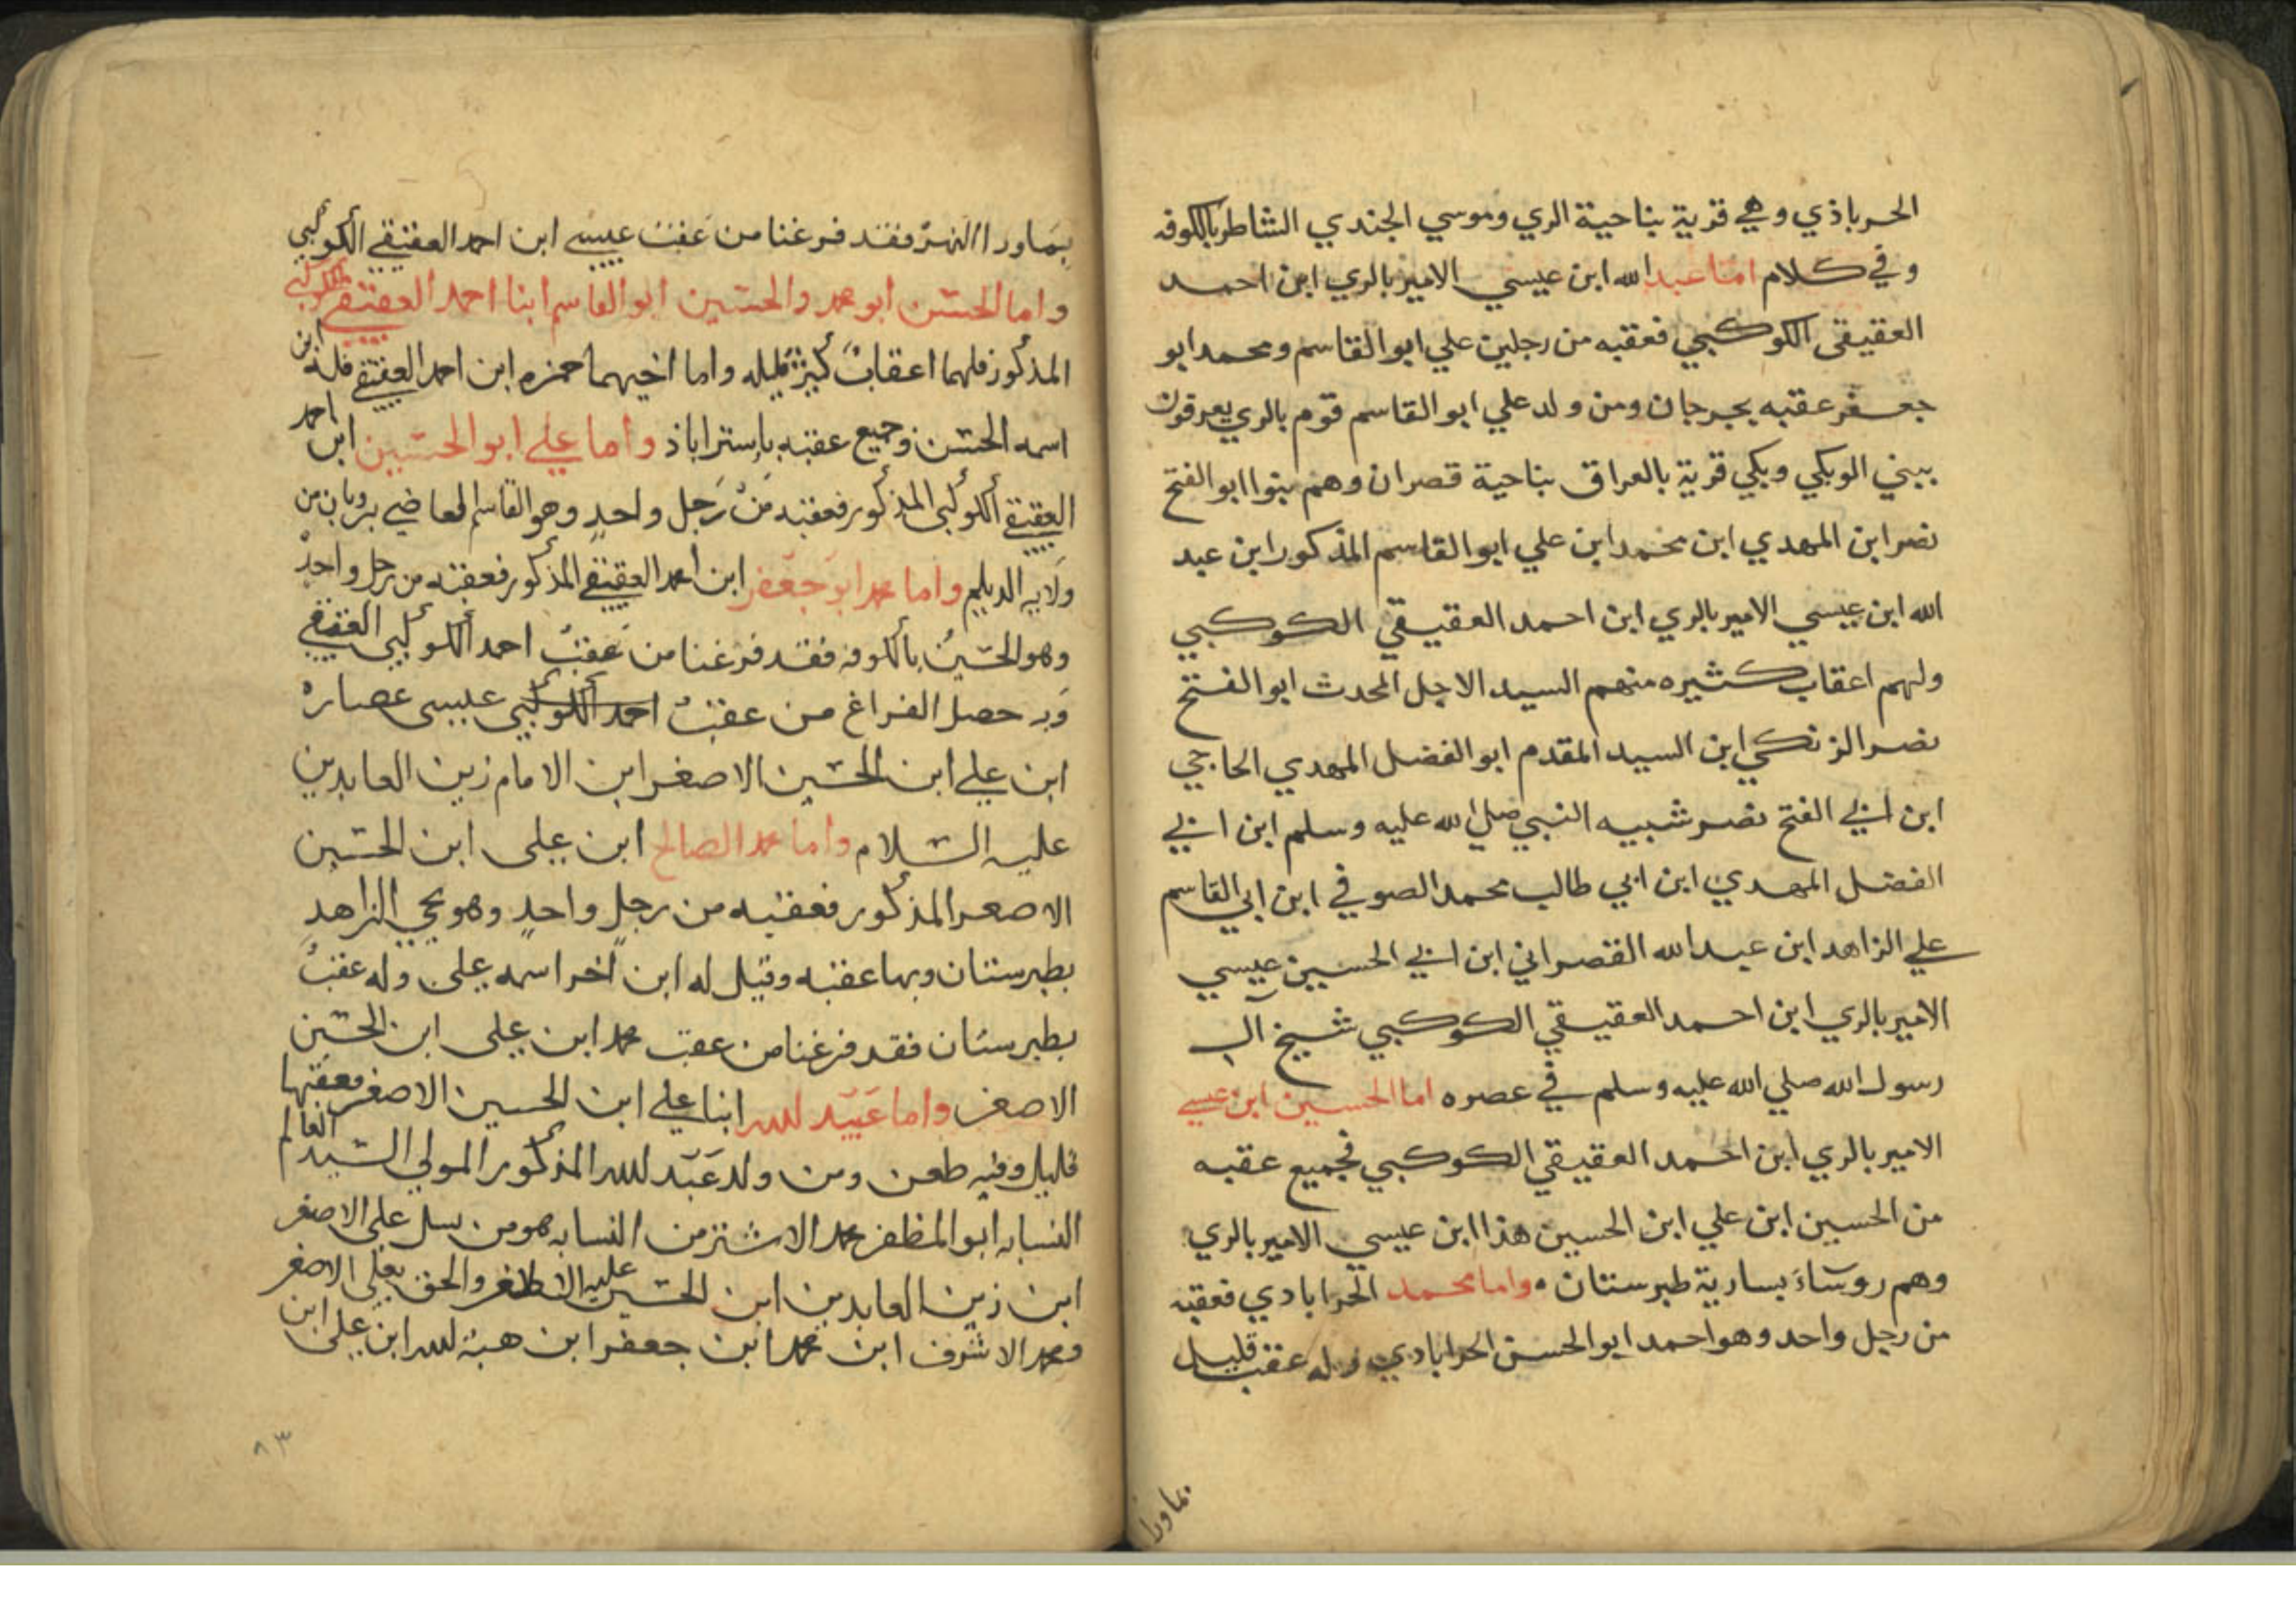 الحرباذي وهي قرية بناحية الري وموسي الجندي الشاطر بالكوفه
وفي كلام اما عبد الله ابن عيسي الامير بالري ابن احمد
العقيقي الكوكبي فعقبه من رجلين علي ابو القاسم ومحمد ابو
جعفر عقبه بجرجان ومن ولد علي ابو القاسم قوم بالري يعرفون
ببني الوبكي وبكي قرية بالعراق بناحية قصران وهم بنوا ابو الفتح
نصر ابن المهدي ابن محمد ابن علي ابو القاسم المذكور ابن عبد
الله ابن عيسي الامير بالري ابن احمد العقيقي الكوكبي
ولهم اعقاب كثيره منهم السيد الاجل المحدث ابو الفتح
نصر الزنكي ابن السيد المقدم ابو الفضل المهدي الحاجي
ابن ابي الفتح نصر شبيه النبي صلي الله عليه وسلم ابن ابي
الفضل المهدي ابن ابي طالب محمد الصوفي ابن ابي القاسم
علي الزاهد ابن عبد الله القصراني ابن ابي الحسين عيسي
الامير بالري ابن احمد العقيقي الكوكبي شيخ آل
رسول الله صلي الله عليه وسلم في عصره اما الحسين ابن عيسي
الامير بالري ابن احمد العقيقي الكوكبي فجميع عقبه
من الحسين ابن علي ابن الحسين هذا ابن عيسي الامير بالري
وهم روساء بسارية طبرستان واما محمد الحرابادي فعقبه
من رجل واحد وهو احمد ابو الحسن الحرابادي وله عقب قليل
بماورا
بماورا النهر فقد فرغنا من عقب عيسي ابن احمد العقيقي الكوكبي
واما الحسن ابو محمد والحسين ابو القاسم ابنا احمد العقيقي الكوكبي
المذكور فلهما اعقاب كثير قليله واما اخيهما حمزه ابن احمد العقيقي فله ابن
اسمه الحسن وجميع عقبه باستراباذ واما علي ابو الحسين ابن احمد
العقيقي الكوكبي المذكور فعقبه من رجل واحد وهو القاسم القاضي برويان من
ولايه الديلم واما محمد ابو جعفر ابن احمد العقيقي المذكور فعقبه من رجل واحد
وهو الحسين بالكوفه فقد فرغنا من عقب احمد الكوكبي العقيقي
وبه حصل الفراغ من عقب احمد الكوكبي عيسى غضاره
ابن علي ابن الحسين الاصغر ابن الامام زين العابدين
عليه السلام واما محمد الصالح ابن علي ابن الحسين
الاصغر المذكور فعقبه من رجل واحد وهو يحيي الزاهد
بطبرستان وبها عقبه وقيل له ابن اخر اسمه علي وله عقب
بطبرستان فقد فرغنا من عقب محمد ابن علي ابن الحسين
الاصغر واما عبيد لله ابنا علي ابن الحسين الاصغر فعقبها
قليل وفيه طعن ومن ولد عبيد لله المذكور المولي السيد العالم
النسابه ابو المظفر محمد الاشتر من النسابه هو من نسل علي الاصغر
ابن زين العابدين ابن الحسين عليه والحق بعلي الاصغر
محمد الاشرف ابن محمد ابن جعفر ابن هبة لله ابن علي ابن
٨٣